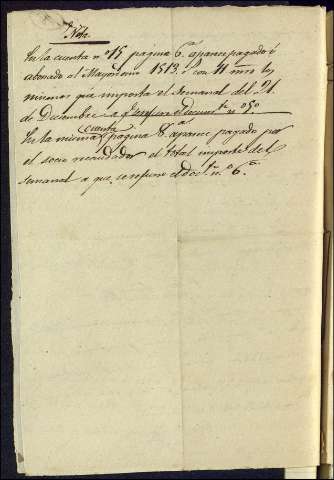 Nota
En la cuenta n.º 15 pagina 6.ª aparece pagado ó
abonado al Mayordomo 1513 r.s con 11 mrs los
mismos que importa el semanal del 21.
de Diciembre a q.e se refiere el docum.to n.º 5º.
En la misma cuenta pagina 8.ª aparece pagado por
el socio recaudador el total importe del
semanal a que se refiere el doc.to n.º 6.º